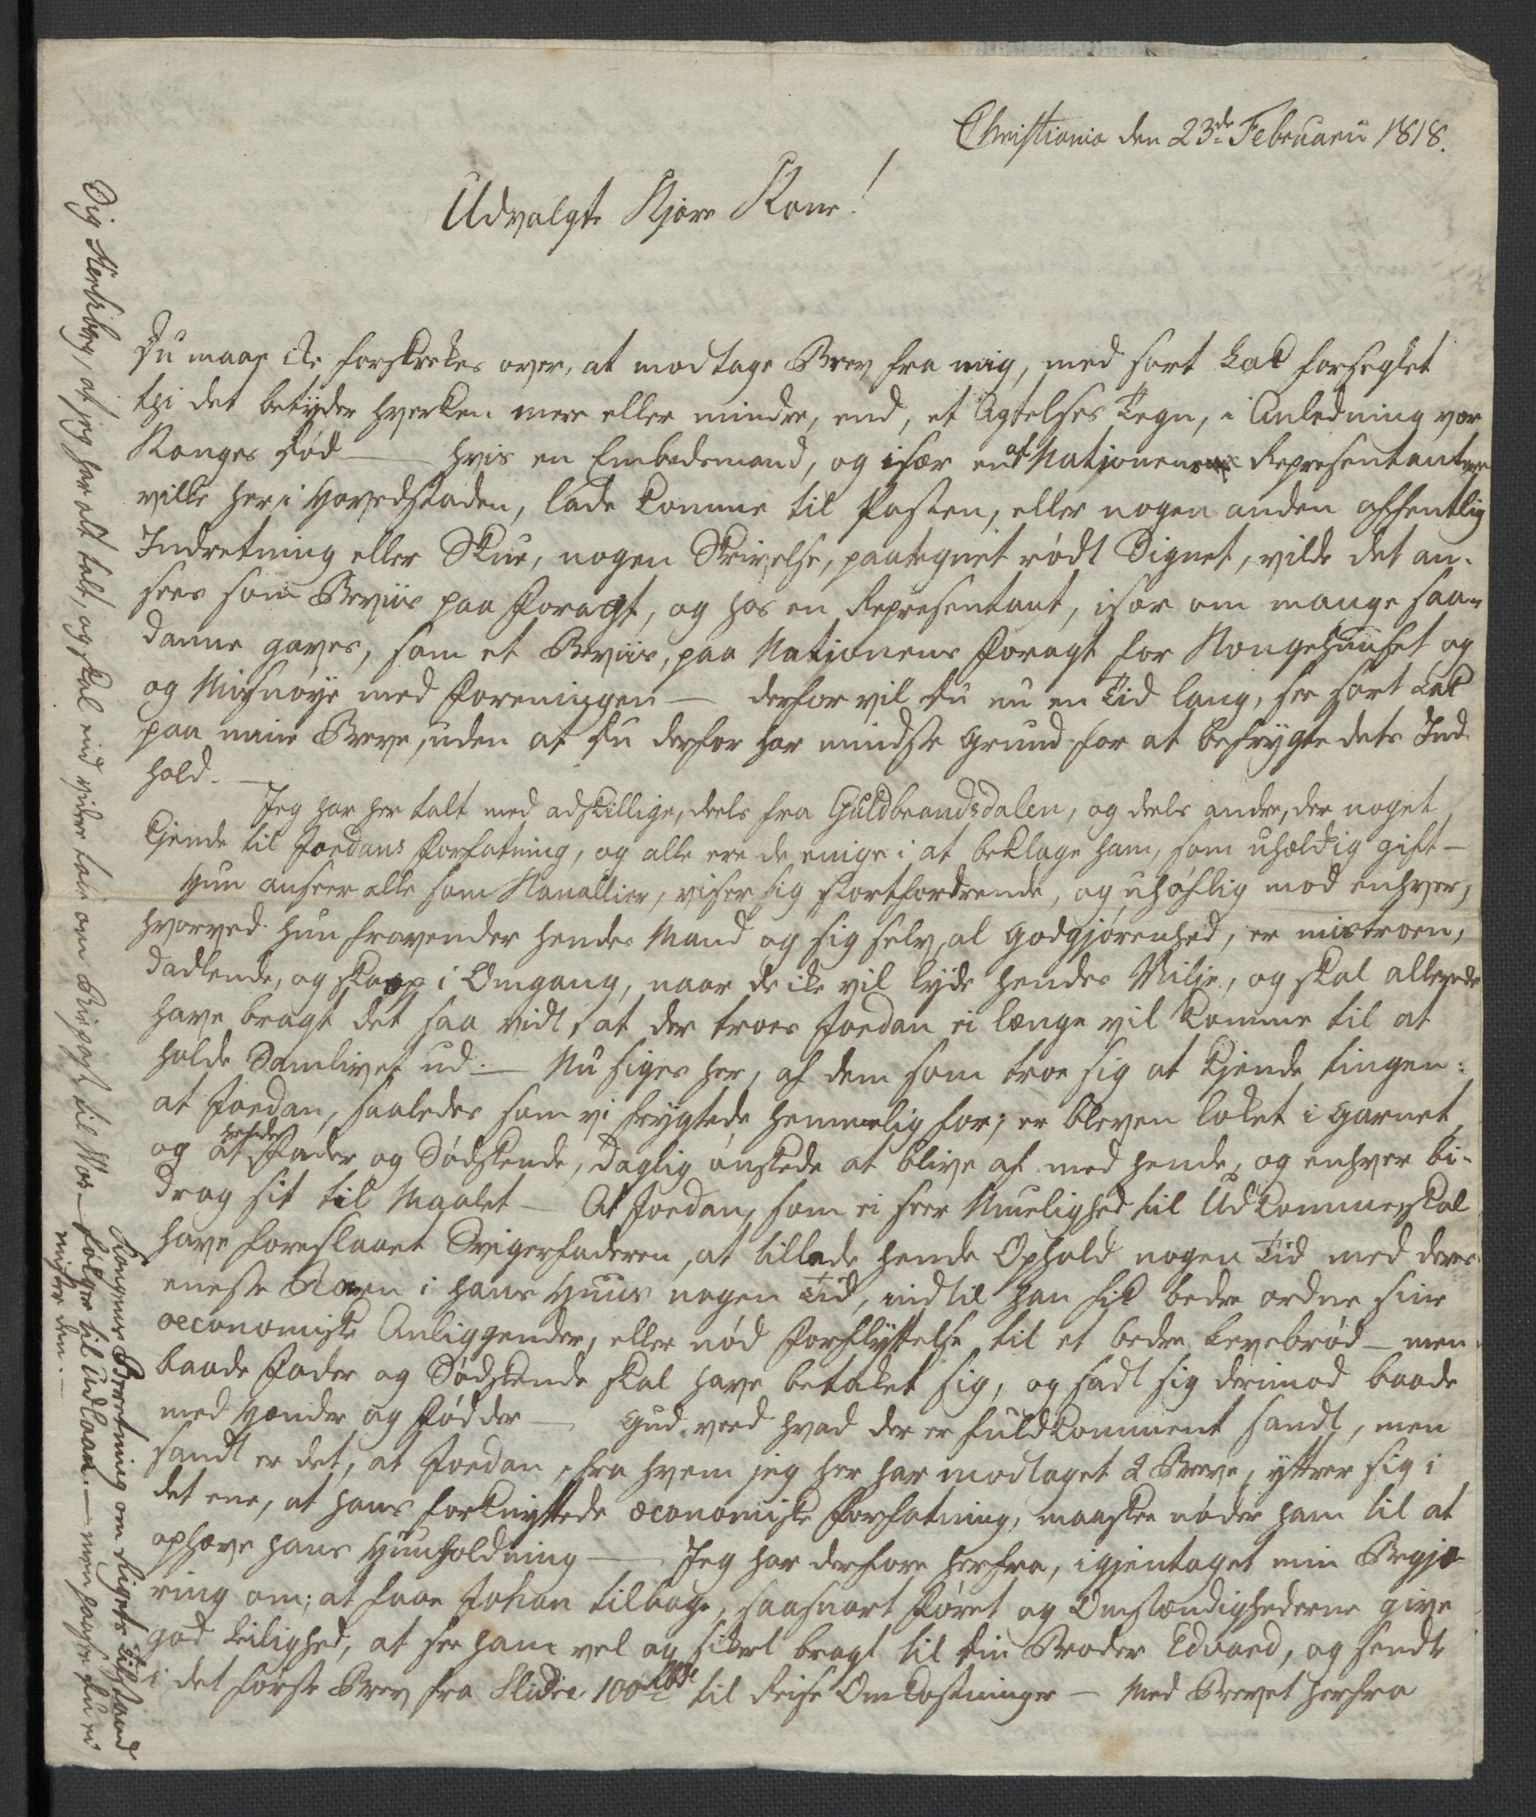 Christiania den 23de Februarii 1818.
Udvalgte Kjære Kone!
Du maae ikke forskrekkes over, at modtage Brev fra mig, med sort Lak forseglet
thi det betyder hverken mere eller mindre, end, et Agtelses Tegn, i Anledning vor
Konges Død — hvis en Embedsmand, og især en af Nationens Representantere
ville her i Hovedstaden, lade komme til Posten, eller nogen anden offentlig
Indretning eller Skue, nogen Skrivelse, paategnet rødt Signet, vilde det an-
sees som Beviis paa Foragt, og hos en Representant, især om mange saa-
danne gaves, som et Beviis, paa Nationens Foragt for Kongehuuset og
og Misnøye med Foreningen — derfor vil Du nu en Tid lang, see sort Lak
paa mine Breve, uden at Du derfor har mindste Grund for at befrygte dets Ind-
hold. —
Jeg har her talt med adskillige, deels fra Guldbrandsdalen, og deels andre, der noget
kjende til Jordans Forfatning, og alle ere de enige i at beklage ham, som uheldig gift —
Hun anseer alle som Kanallier, viser sig stortfordrende, og uhøflig mod enhver,
hvorved hun fravender hendes Mand og sig selv al Godgjørenhed, er mistroen,
dadlende, og skarp i Omgang, naar de ike vil lyde hendes Vilje, og skal allerede
have bragt det saa vidt, at der troes Jordan ei længe vil komme til at
holde Samlivet ud. — Nu siges her, af dem som troe sig at kjende tingen:
at Jordan, saaledes som vi frygtede hemmelig for; er bleven loket i Garnet,
og at hendes Fader og Sødskende, daglig ønskede at blive af med hende, og enhver bi-
drog sit til Maalet — At Jordan, som ei seer Muelighed til Udkomme, skal
have foreslaaet Svigerfaderen, at tillade hende Ophold nogen Tid med deres
eneste Barn i hans Huus nogen Tid, indtil han fik bedre ordne sine
oeconomiske Anliggender, eller nød Forflyttelse til et bedre Levebrød — men
baade Fader og Sødskende skal have betakket sig, og sadt sig derimod baade
med Hænder og Fødder — Gud veed hvad der er fuldkomment sandt, men
sandt er det, at Jordan, fra hvem jeg her har modtaget 2 Breve, yttrer sig i
det ene, at hans forknyttede oeconomiske Forfatning, maaskee nøder ham til at
ophæve hans Huusholdning — Jeg har derfore herfra, igjentaget min Begjæ-
ring om; at faae Johan tilbage, saasnart Føret og Omstændighederne give
god Leilighed, at see ham vel og sikert bragt til din Broder Edvard, og sendte
i det første Brev fra Slidre 100 rbd til Reise Omkostninger — Med Brevet herfra
Dig Hertzberg, at jeg har alt talt, og skal end videre tale om Bispost til Vos —
Kongens Beretning om Rigets Tilstand
følger til Udlaan — men passe Du ei
mister den. —